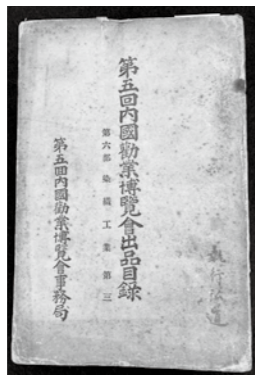 第五回內國勸業博覽會出品目錄
第六部染織工業第三
第五回內國勸業博覽會事務局